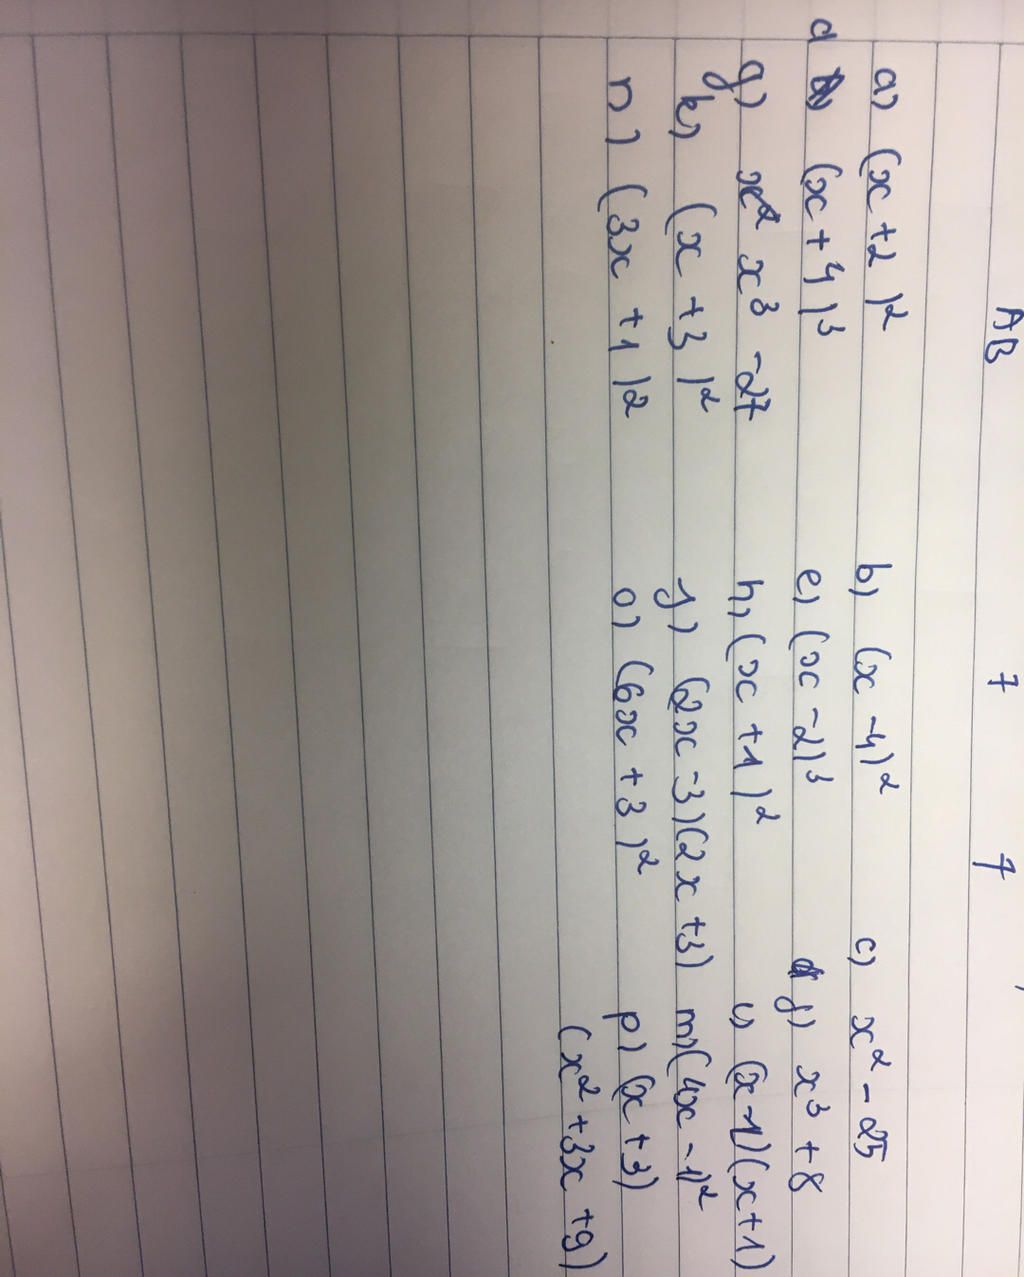 AB 7 7
a) (x+2)² b) (x-4)² c) x²-25
d) (x+4)³ e) (x-2)³ f) x³+8
g) x³-27 h) (x+1)² i) (x-1)(x+1)
k) (x+3)² j) (2x-3)(2x+3) m) (4x-1)²
n) (3x+1)2 o) (6x+3)² p) (x+3)
(x²+3x+9)